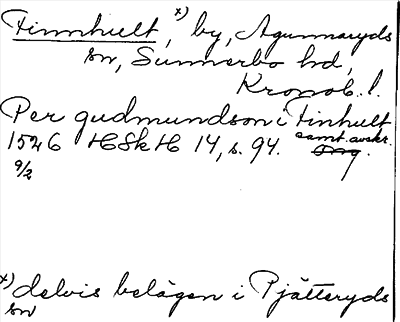 Finnhult,ˣ⁾ by, Agunnaryds
sn, Sunnerbo hd,
Kronob. l.
Per gudmundson i Finhult
1526 HSkH 14, s. 94. samt. avskr.
9/2
x) delvis belägen i Pjätteryds
sn